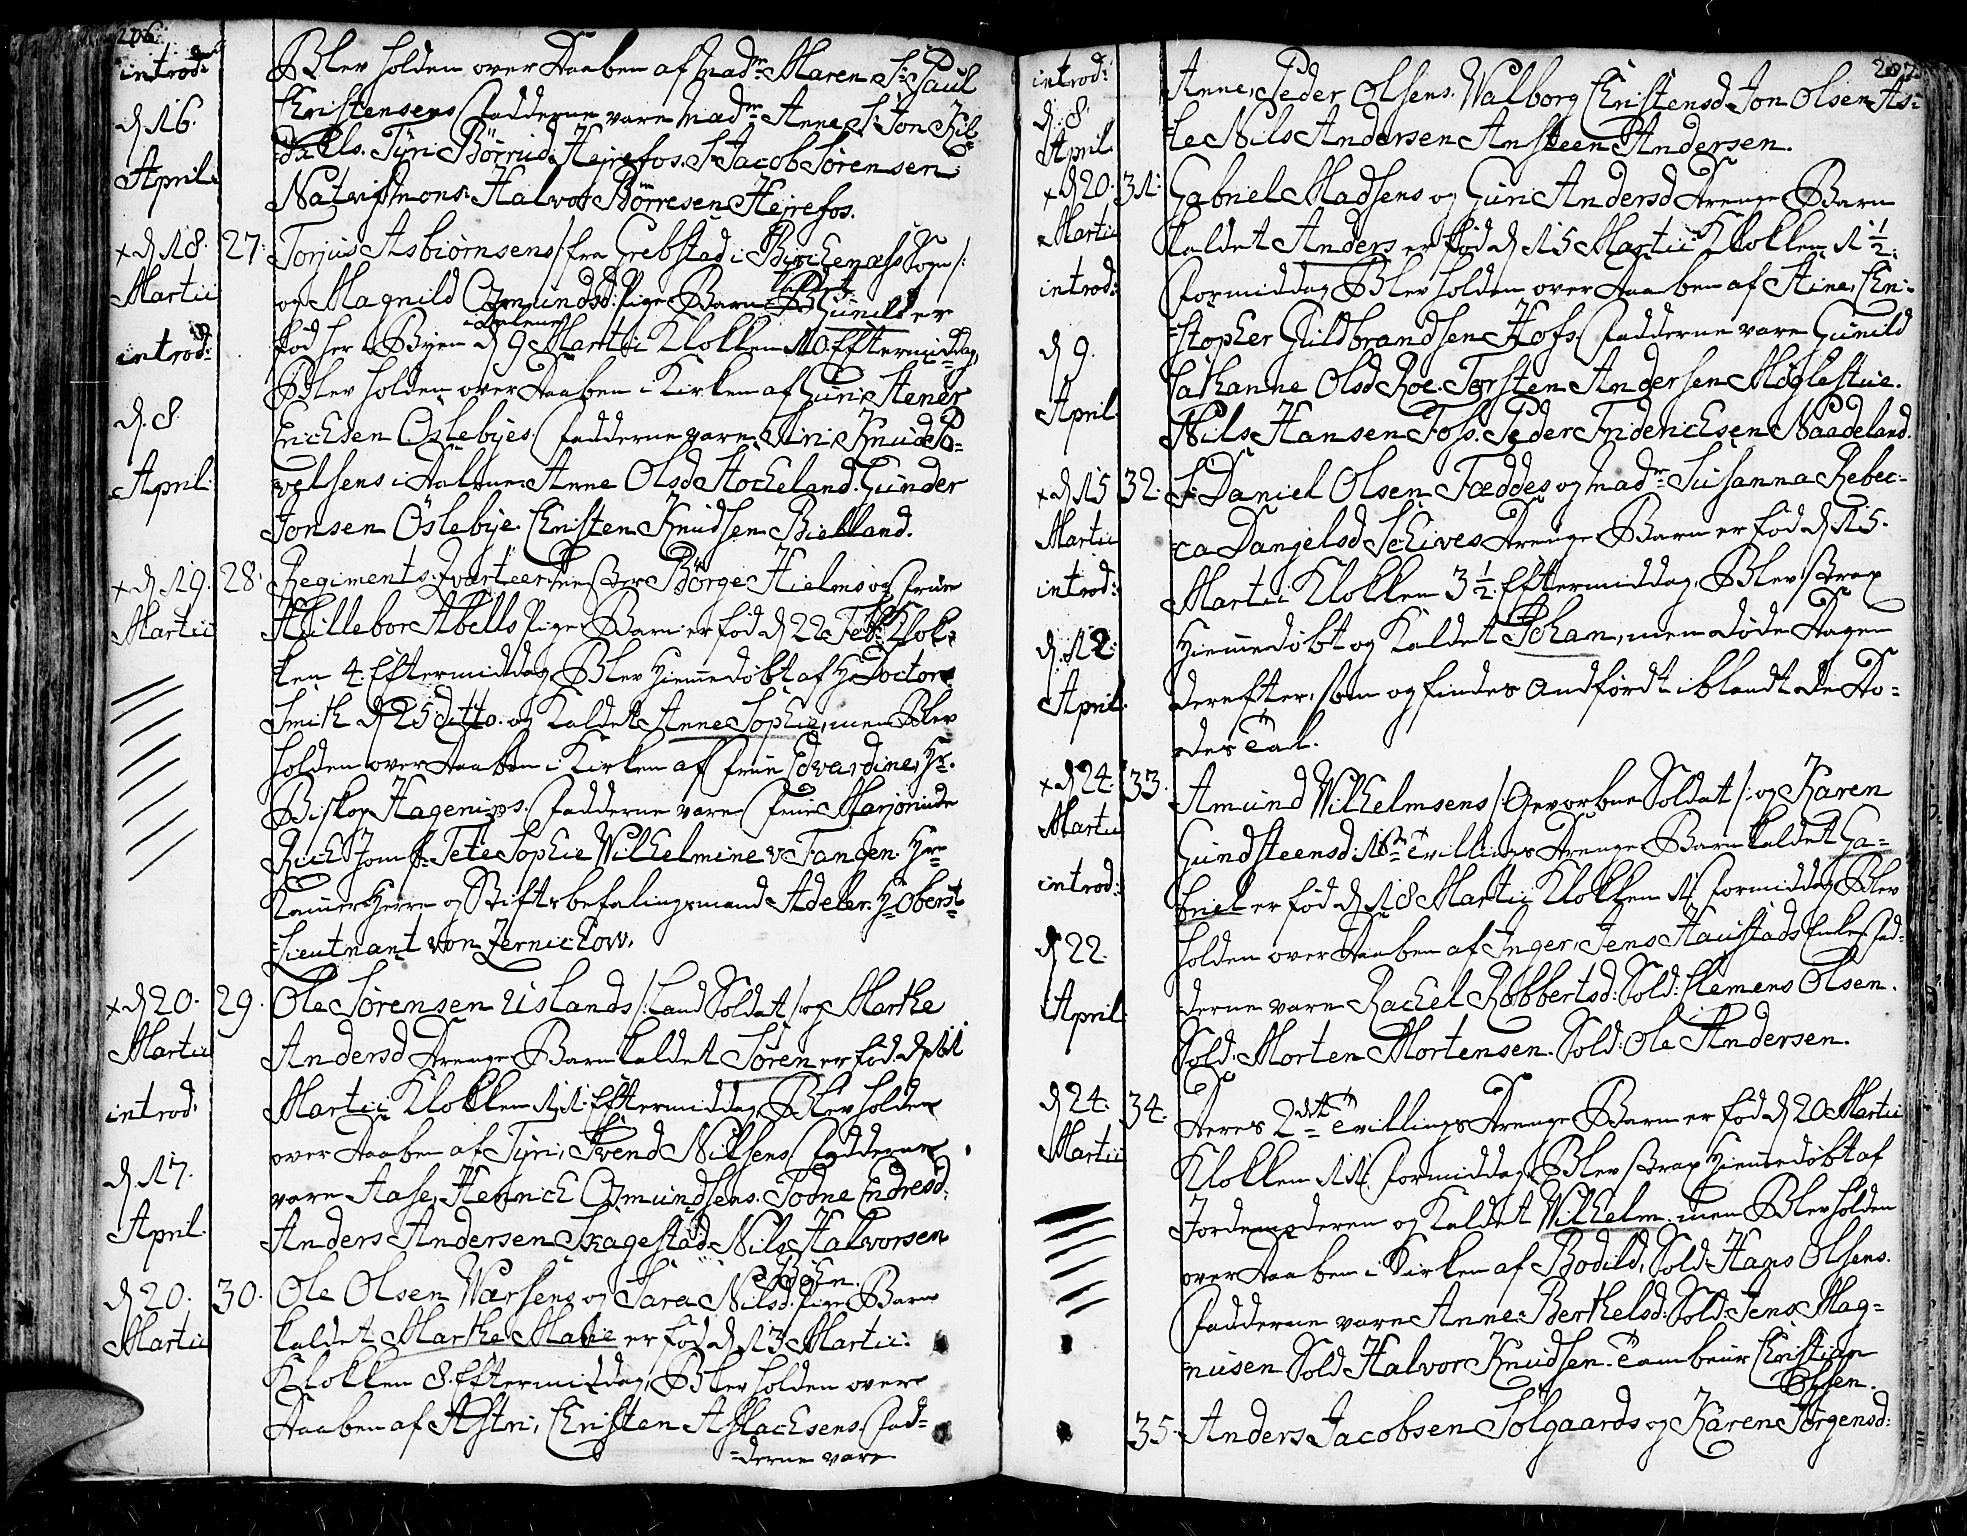 206.
introd:
d. 16.
April.
Blev holden over Daaben af Mad.m Maren Sr. Paul
Christensens Fadderne vare Mad.m Anne Sr. Jon Kil-
Tyri Børrud: Hejrefos. Sr. Jacob Sørensen
Halvor Børresen Hejrefos.
+ d 18. Martii
27.
introd:
d. 8 April.
Torjus Asbiørnsens /: fra Grebstad i Birkenæs Sogn :/
og Magnild Omundsd: Pige Barn kaldet Gunild er
fød her i Byen d 9 Martii Klokken 10 Eftermiddag,
Blev holden over Daaben i Kirken af Guri, Stener
Erichsen Oslebyes. Fadderne vare Siri, Knud Po-
velsens i Dalene. Anne Olsd Stocheland. Gunder
Jonsen Öslebye. Christen Knudsen Bielland.
+ d 19. Martii
28.
Regiments Qvarteermester Börge Hielms og Frue
Hillebor Abells Pige Barn er fød d 22 Feb: Klok-
ken 4 Eftermiddag, Blev Hiemmedøbt af Hr Doctor
Smith d 25 ditto. og Kaldet Anne Sophie, men Blev
holden over Daaben i Kirken af Frue Edvardine, Hr.
Biskop Hagerups. Fadderne vare Frue Marjorinde
Rich Jomf: Tete Sophie Wilhelmine v Tangen Hr
Kammer Herre og Stiftsbefalingsmand Adeler. Hr Oberst-
Lieutnant von Zernichow.
+ d 20. Martii
29.
introd:
d. 17. April.
Ole Sørensen Uslands /: Land Soldat :/ og Marthe
Andersd Drenge Barn kaldet Søren er fød d 11
Martii Klokken 11 Eftermiddag, Blev holden
over Daaben af Tyri, Svend Nilsens Fadderne
vare Aase, Henrich Omundsens. Todne Endresd:
Anders Andersen Skagestad Nils Halvorsen
Böen.
d 20. Martii
30.
Ole Olsen Værsens og Sara Nilsd. Pige Barn
kaldet Marthe Marie er fød d 13 Martii
Klokken 8. Eftermiddag, Blev holden over
Daaben af Astri, Christen Aslachsens. Fad-
derne vare
207.
introd:
d. 8. April
Anne, Peder Olsens. Walborg Christensd Jon Olsen As-
le Nils Andersen Ansteen Andersen.
+ d 20. Martii
31.
introd:
d 9. April
Gabriel Madsens og Guri Andersd Drenge Barn
kaldet Anders er fød d 15 Martii Klokken 1 ½
Formiddag Blev holden over Daaben af Stine, Chri-
stopher Hildbrandsen Hofs. Fadderne vare Gunild
Cathanne Olsd Roe. Torsten Andersen Møglestue.
Nils Hansen Foss. Peder Friderichsen Naadeland.
+ d 15 Martii
32.
introd:
d. 12. April
Sr. Daniel Olsen Fæddes og Mad.m Susanna Rebec-
ca Danjelsd Schives Drenge Barn er fød d 15.
Martii Klokken 3 ½ Eftermiddag, Blev strax
Hiemmedøbt og Kaldet Johan, men døde Dagen
derefter, som og findes andfördt iblandt de Dö-
des Tal.
+ d 24. Martii
33.
introd:
d 22. April
Amund Wilhelmsens /: Gevorbne Soldat :/ og Karen
Gundsteensd: 1ste Tvillings Drenge Barn kaldet Ga-
briel er fød d 18 Martii Klokken 11 Formiddag Blev
holden over Daaben af Inger, Jens Haustads Enke. Fad-
derne vare Rachel Robbertsd: Sold: Clemens Olsen.
Sold: Morten Mortensen. Sold: Ole Andersen.
d 24. Martii
34.
Deres 2det Tvillings Drenge Barn er fød d 20 Martii
Klokken 11 Formiddag, Blev strax Hiemmedøbt af
Jordemoderen og Kaldet Wilhelm, men Blev holden
over Daaben i Kirken af Bodild, Sold: Hans Olsens.
Fadderne vare Anne Berthelsd: Sold: Jens Mag-
nusen Sold Halvor Knudsen. Tambeur Christian
Olsen.
35.
Anders Jacobsen Solgaards og Karen Jörgensd: